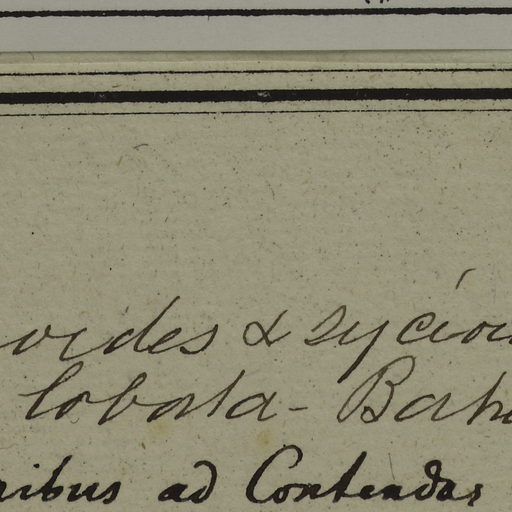 oides & sycioi
lobata - Bah
ribus ad Contendas